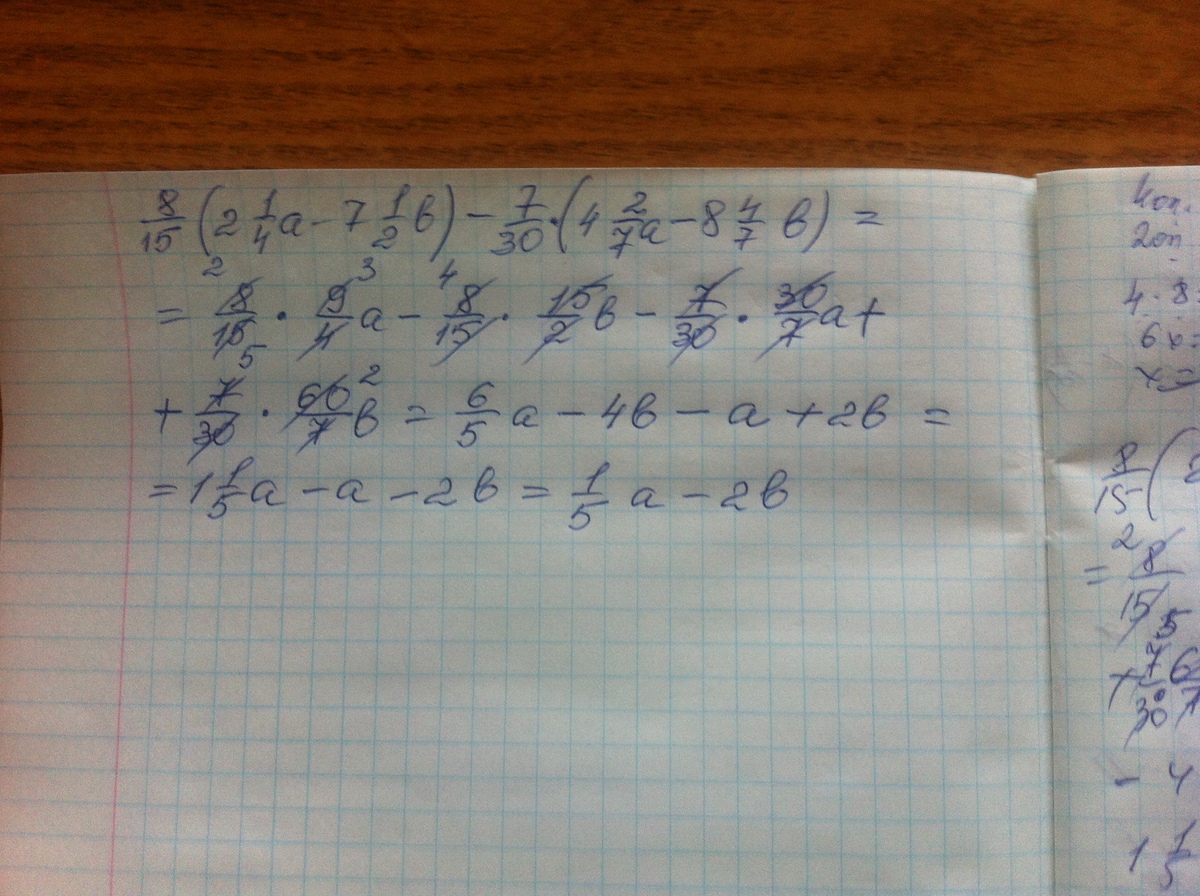 8/15 (2 1/4 a - 7 1/2 b) - 7/30 · (4 2/7 a - 8 4/7 b) =
= 8/15 · 9/4 a - 8/15 · 15/2 b - 7/30 · 30/7 a +
+ 7/30 · 60/7 b = 6/5 a - 4b - a + 2b =
= 1 1/5 a - a - 2b = 1/5 a - 2b
4on.
2on
4 · 8
6x=
x=
8/15 (
= 8/15
+ 7/30 ·
- 4
1 1/5